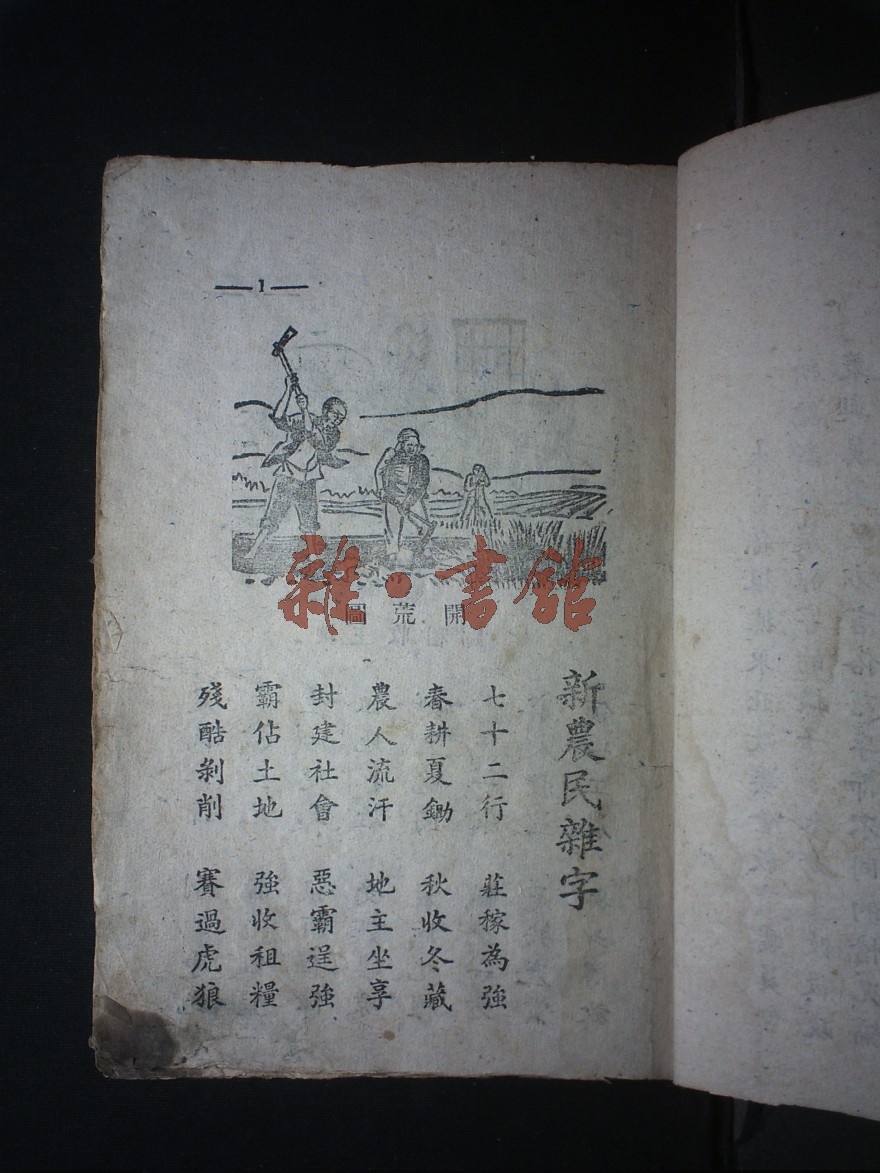 —1—
雜·書館
開荒圖
新農民雜字
七十二行 莊稼為強
春耕夏鋤 秋收冬藏
農人流汗 地主坐享
封建社會 惡霸逞強
霸佔土地 強收租糧
殘酷剝削 賽過虎狼